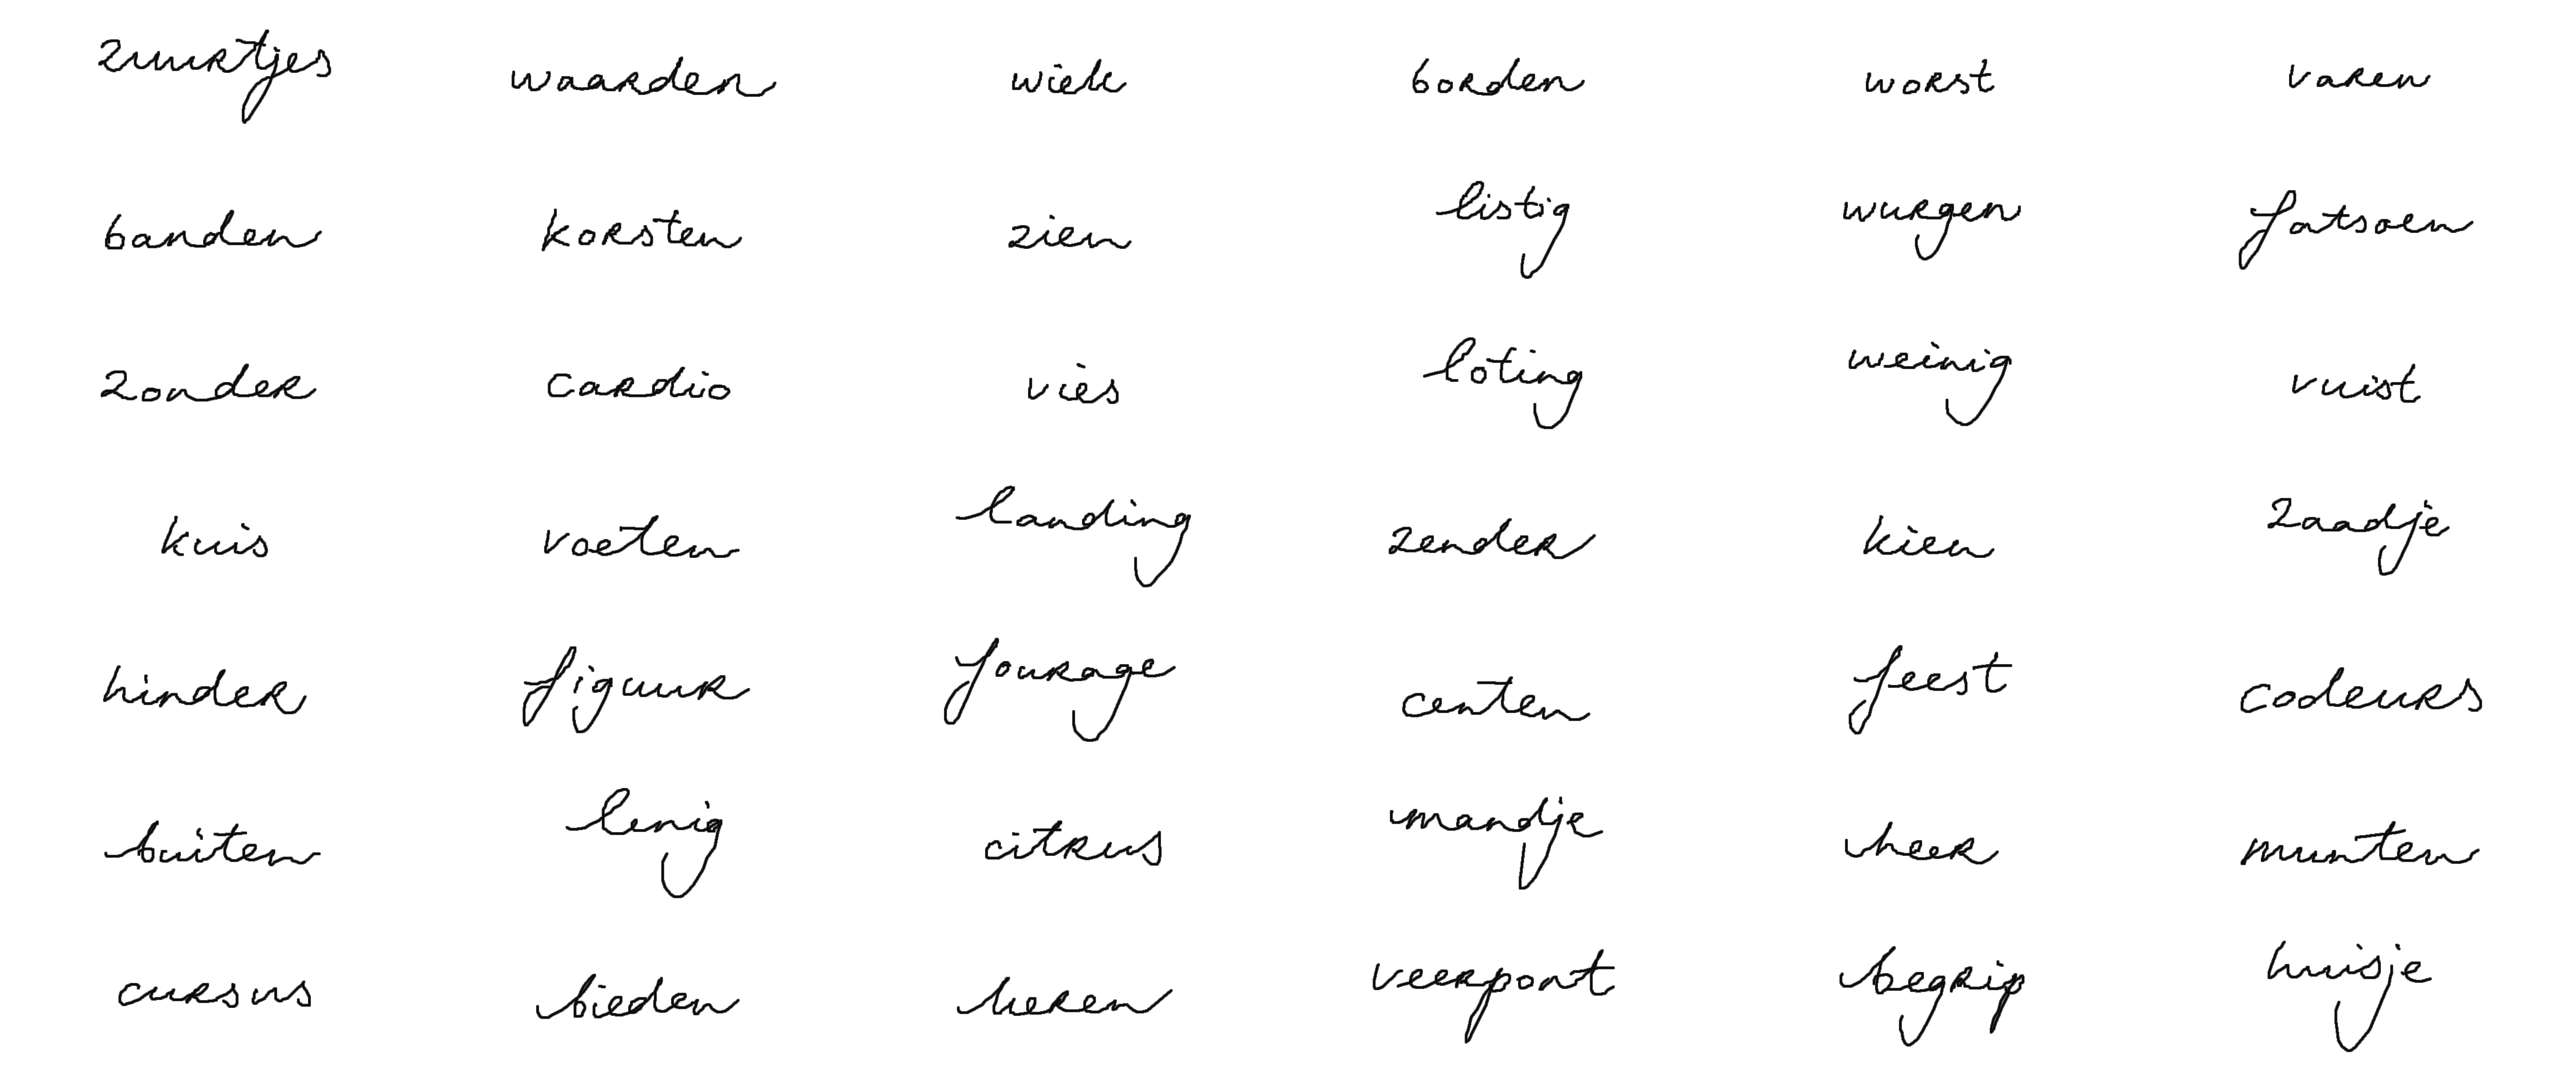 zuurtjes waarden wiek borden worst varen
banden korsten zien listig wurgen fatsoen
zonder cardio vies loting weinig vuist
kuis voeten landing zender kien zaadje
hinder figuur fourage centen feest codeurs
buiten lenig citrus mandje heer munten
cursus bieden heren veerpont begrip huisje